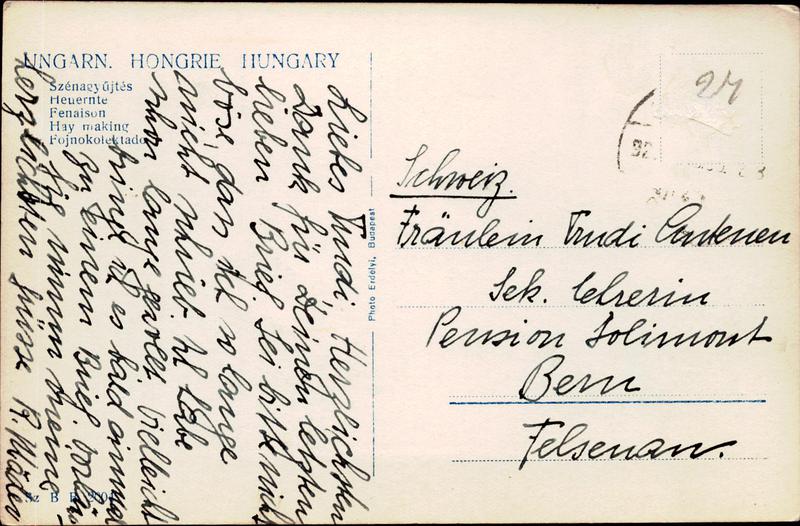 UNGARN. HONGRIE. HUNGARY
Szénagyűjtés
Heuernte
Fenaison
Hay making
Fojnokolektado
Liebes Trudi, Herzlichsten
Dank für Deinen letzten
lieben Brief. Sei bitte nicht
böse, dass ich so lange
nicht schrieb. Ich habe
schon lange vielleicht
bringt es bald einmal
zu einem Brief.
nimm meine
herzlichsten Grüsse
Photo Erdelyi, Budapest
24
Schweiz.
Fräulein Trudi
Sek. Lehrerin
Pension Solimont
Bern
Felsenau.